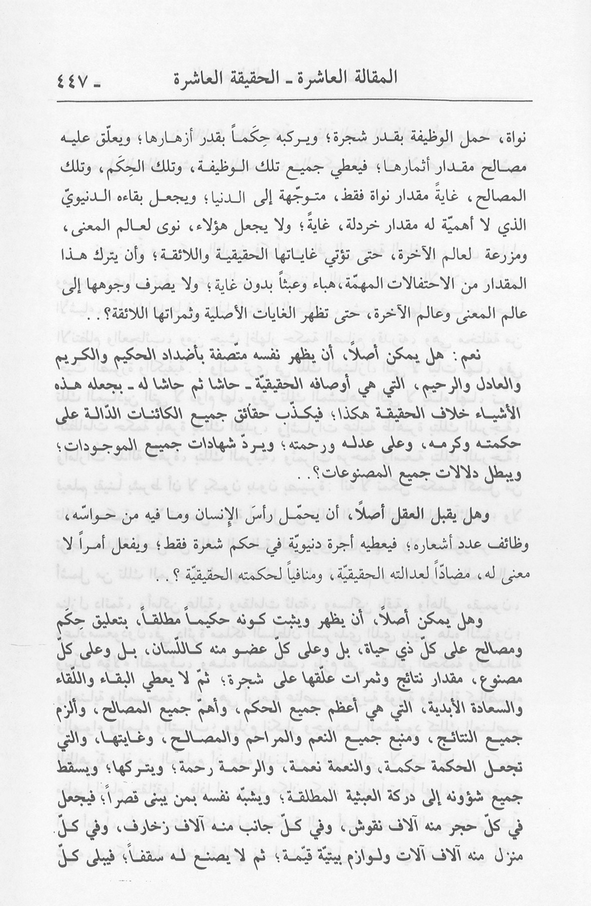 المقالة العاشرة ـ الحقيقة العاشرة ـ ٤٤٧
نواة، حمل الوظيفة بقدر شجرة؛ ويـركبه حِكَماً بقدر أزهـارها؛ ويعلّق عليـه
مصـالح مقـدار أثمارهـا؛ فيعطي جميـع تلك الـوظيفـة، وتلك الحِكَم، وتلك
المصالح، غايةً مقدار نواة فقط، متـوجّهة إلى الدنيا؛ ويجعـل بقاءه الدنيـويّ
الذي لا أهميّة له مقدار خردلة، غايةً؛ ولا يجعل هؤلاء، نوى لعـالم المعنى،
ومزرعة لعالم الآخرة، حتى تؤتي غاياتها الحقيقيـة واللائقـة؛ وأن يترك هـذا
المقدار من الاحتفالات المهمّة، هباء وعبثاً بدون غاية؛ ولا يصرف وجوهها إلى
عالم المعنى وعالم الآخرة، حتى تظهر الغايات الأصلية وثمراتها اللائقة؟..
نعم: هل يمكن أصلاً، أن يظهر نفسه متّصفة بأضداد الحكيم والكريم
والعادل والرحيم، التي هي أوصافه الحقيقيّـة ـ حاشا ثم حاشا له ـ بجعله هـذه
الأشيـاء خلاف الحقيقـة هكذا؛ فيكـذّب حقائق جميـع الكائنـات الدّالـة على
حكمتـه وكرمـه، وعلى عدلـه ورحمته؛ ويـردّ شهادات جميـع الموجـودات؛
ويبطل دلالات جميع المصنوعات؟..
وهل يقبل العقل أصلًا، أن يحمّـل رأسَ الإنسان ومـا فيه من حـواسّه،
وظائف عدد أشعاره؛ فيعطيه أجرة دنيويّة في حكم شعرة فقط؛ ويفعل أمـراً لا
معنى له، مضادّاً لعدالته الحقيقيّة، ومنافياً لحكمته الحقيقيّة ؟..
وهل يمكن أصلًا، أن يظهر ويثبت كـونه حكيمـاً مطلقـاً، بتعليق حِكَم
ومصالح على كـلّ ذي حياة، بل وعلى كلّ عضـو منه كـاللّسان، بـل وعلى كلّ
مصنوع، مقدار نتائج وثمرات علّقها على شجرة؛ ثمّ لا يعطي البقـاء واللّقاء
والسعادة الأبدية، التي هي أعظم جميع الحكم، وأهمّ جميع المصالح، وألزم
جميع النتـائـج، ومنبع جميـع النعم والمراحم والمصـالـح، وغايتهـا، والتي
تجعـل الحكمة حكمـة، والنعمة نعمـة، والرحمـة رحمة؛ ويتـركها؛ ويسقط
جميع شؤونه إلى دركة العبثية المطلقـة؛ ويشبّه نفسـه بمن يبنى قصراً؛ فيجعل
في كلّ حجر منه آلاف نقوش، وفي كـلّ جانب منـه آلاف زخارف، وفي كـلّ
منزل منه آلاف آلات ولـوازم بيتيّة قيّمـة؛ ثم لا يصنع لـه سقفـاً؛ فيبلى كـلّ